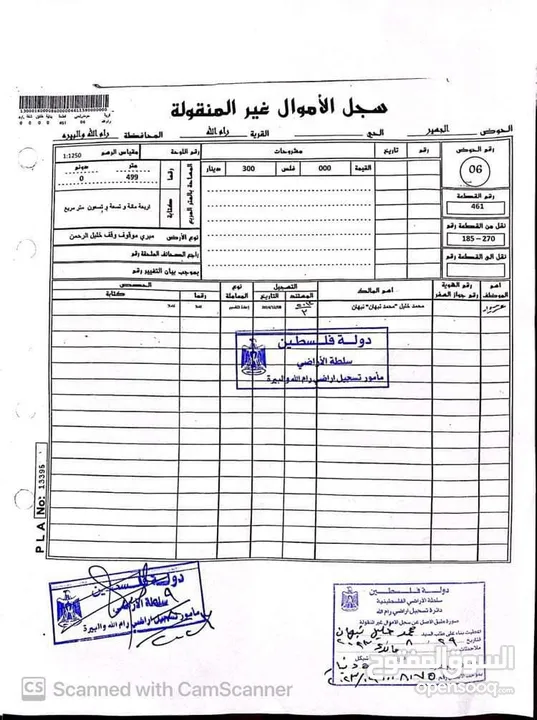 سجل الأموال غير المنقولة
الحوض الجسر الحي القرية رام الله المحافظة رام الله والبيره
رقم الحوض
06
رقم القطعة
461
نقل من القطعة رقم
185-270
نقل الى القطعة رقم
رقم تاريخ مشروحات
القيمة 000 فلس 300 دينار
رقم اللوحة مقياس الرسم 1:1250
المساحة بالمتر المربع
رقما متر دونم
499 0
كتابة اربعة مائة و تسعة و تسعون متر مربع
نوع الأرض ميري موقوف وقف خليل الرحمن
راجع الصحائف الملحقة رقم
بموجب بيان التغيير رقم
اسم الموظف رقم الهوية رقم جواز السفر اسم المالك التسجيل المستند التاريخ نوع المعاملة الحصص رقما كتابة
محمد خليل "محمد نبهان" نبهان
دولة فلسطين
سلطة الأراضي
مأمور تسجيل اراضي رام الله والبيرة
PLA No: 13395
دولة فلسطين
سلطة الأراضي
مأمور تسجيل اراضي رام الله والبيرة
دولة فلسطين
سلطة الأراضي الفلسطينية
دائرة تسجيل اراضي رام الله
صورة طبق الاصل عن سجل الاموال غير المنقولة
اعطيت بناء على طلب السيد محمد خليل نبهان
السوق المفتوح
opensooq.com
CS Scanned with CamScanner